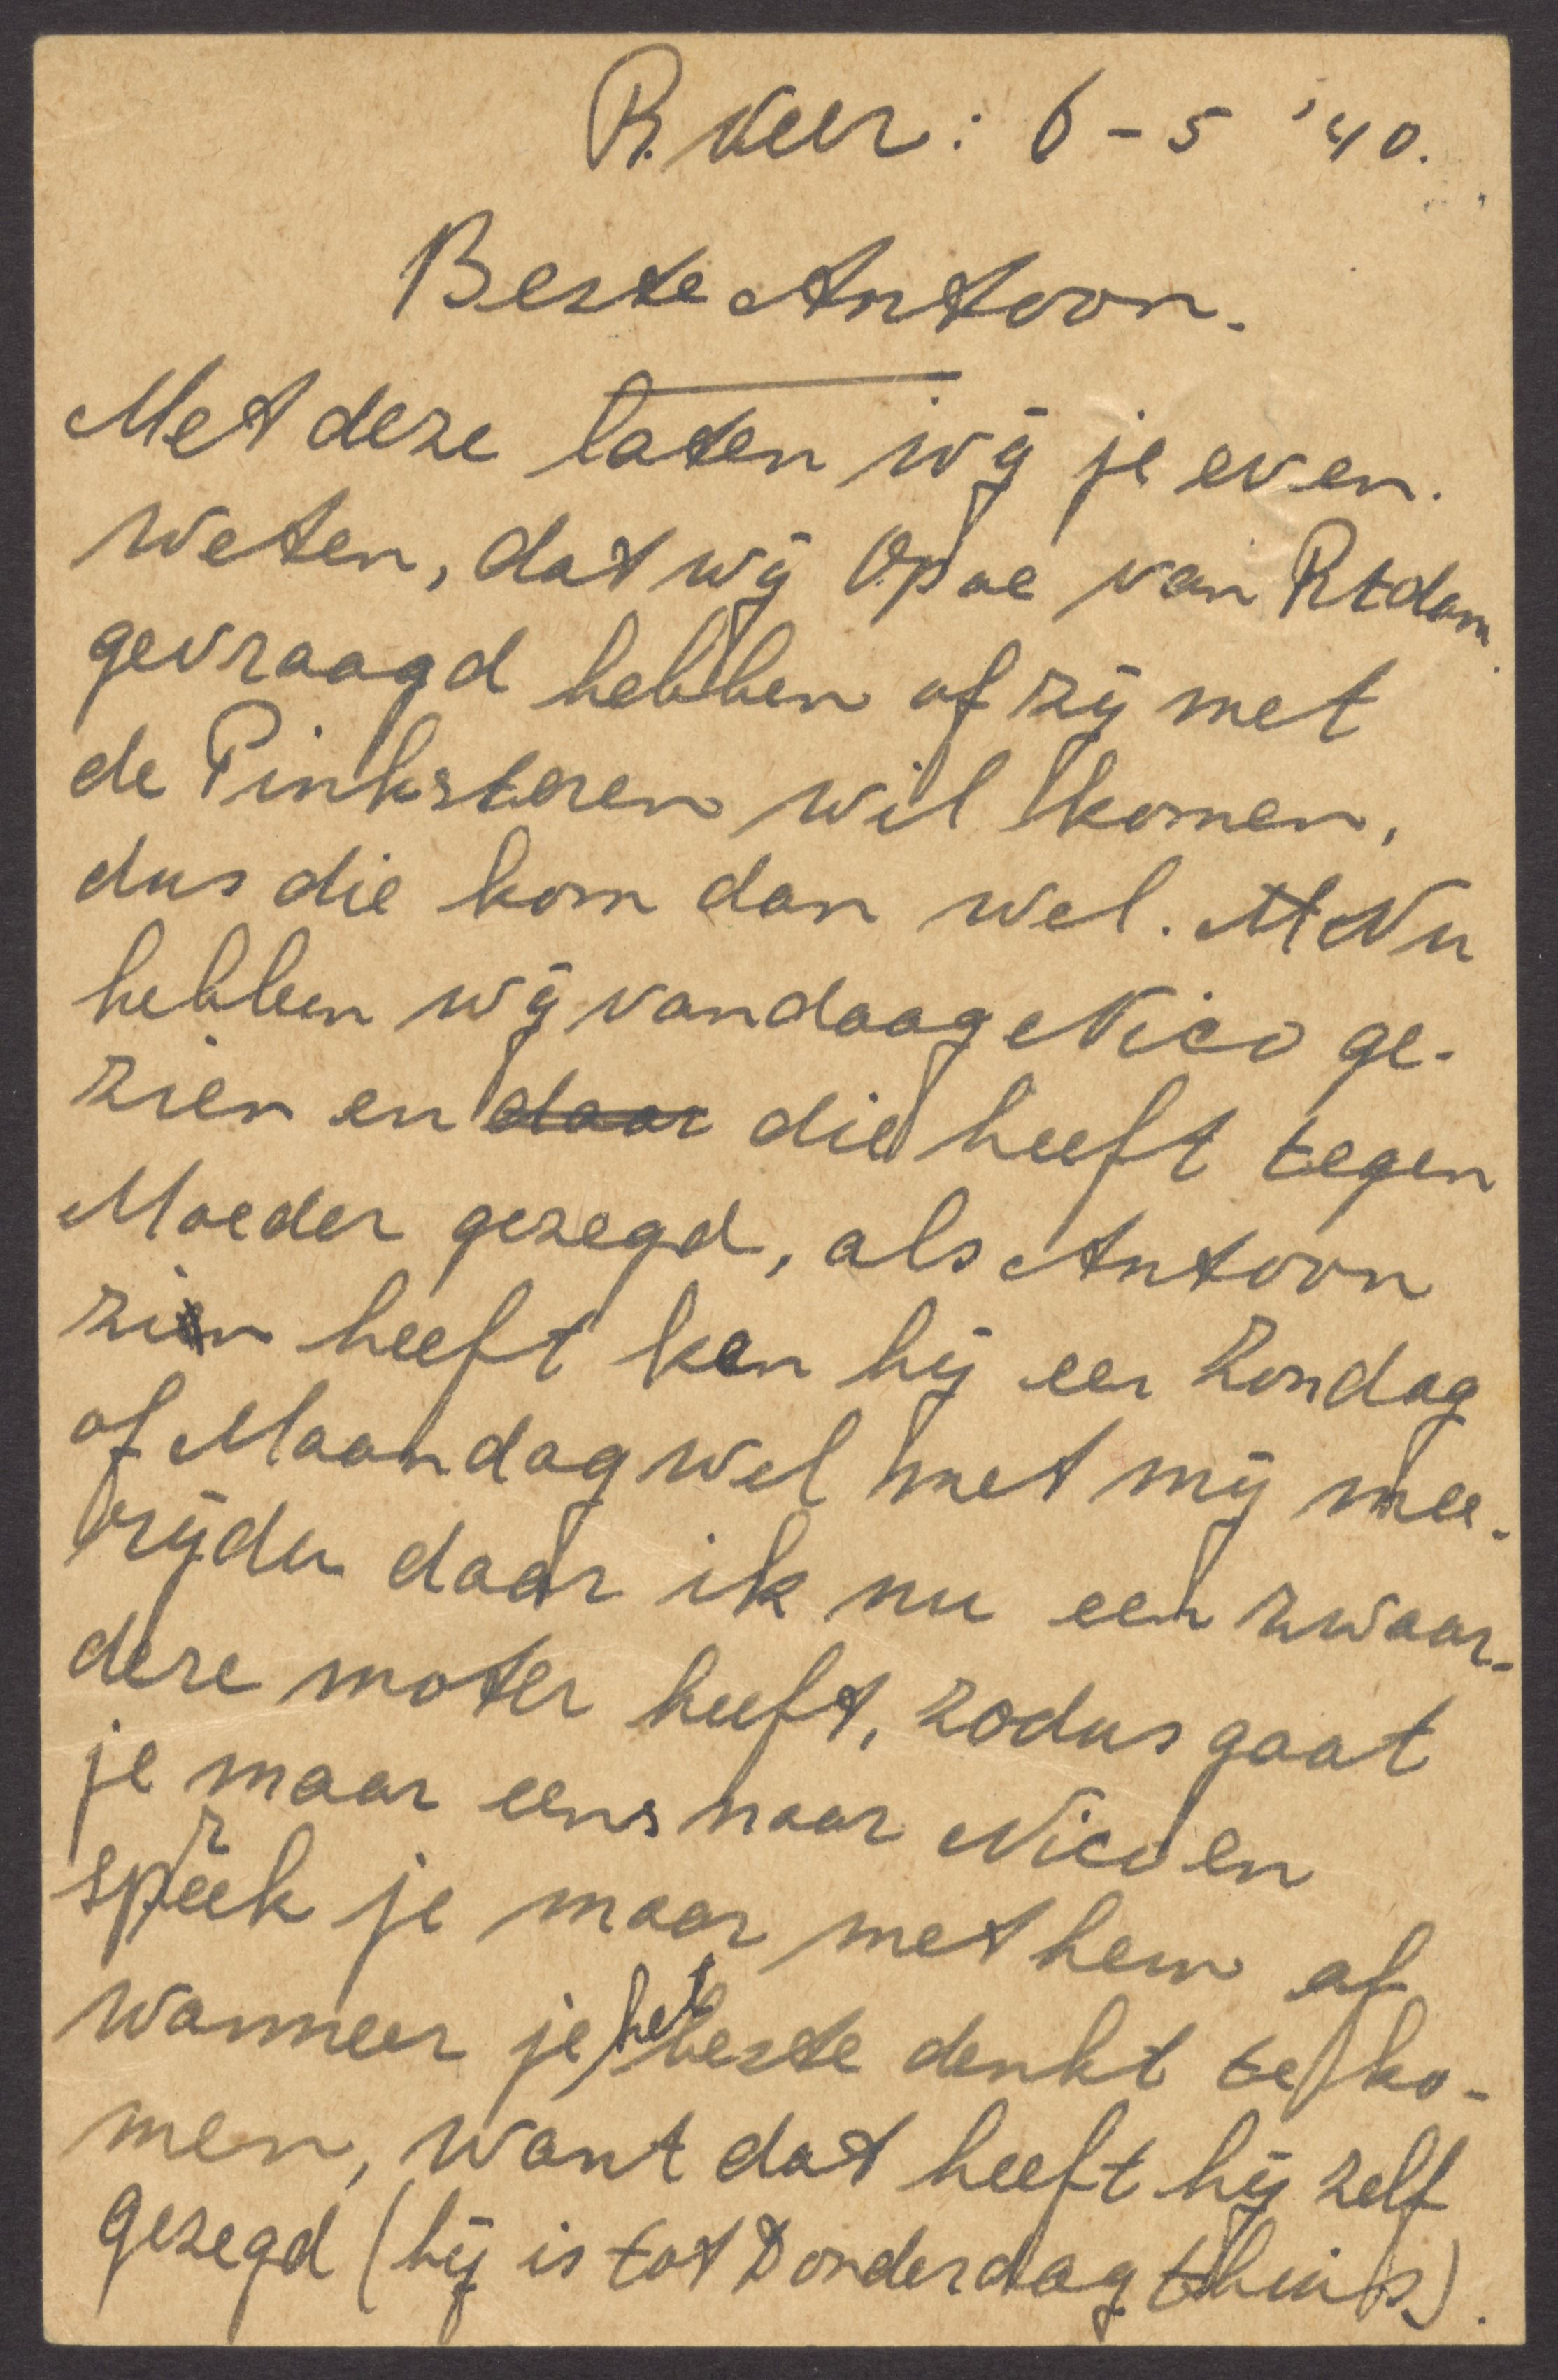 R. veer: 6-5 '40.
Beste Antoon.
Met deze laten wij je even.
weten, dat wij Opoe van Rtdam.
gevraagd hebben of zij met
de Pinksteren wil komen,
dus die kom dan wel. Nu
hebben wij vandaag Nico ge-
zien en daar die heeft tegen
Moeder gezegd, als Antoon
zin heeft ken hij een Zondag
of Maandag wel met mij mee-
rijden daar ik nu een zwaar-
dere moter heeft, zodus gaat
je maar eens naar Nico en
spreek je maar met hem af
wanneer je het beste denkt te ko-
men, want dat heeft hij zelf
gezegd (hij is tot Donderdag thuis).